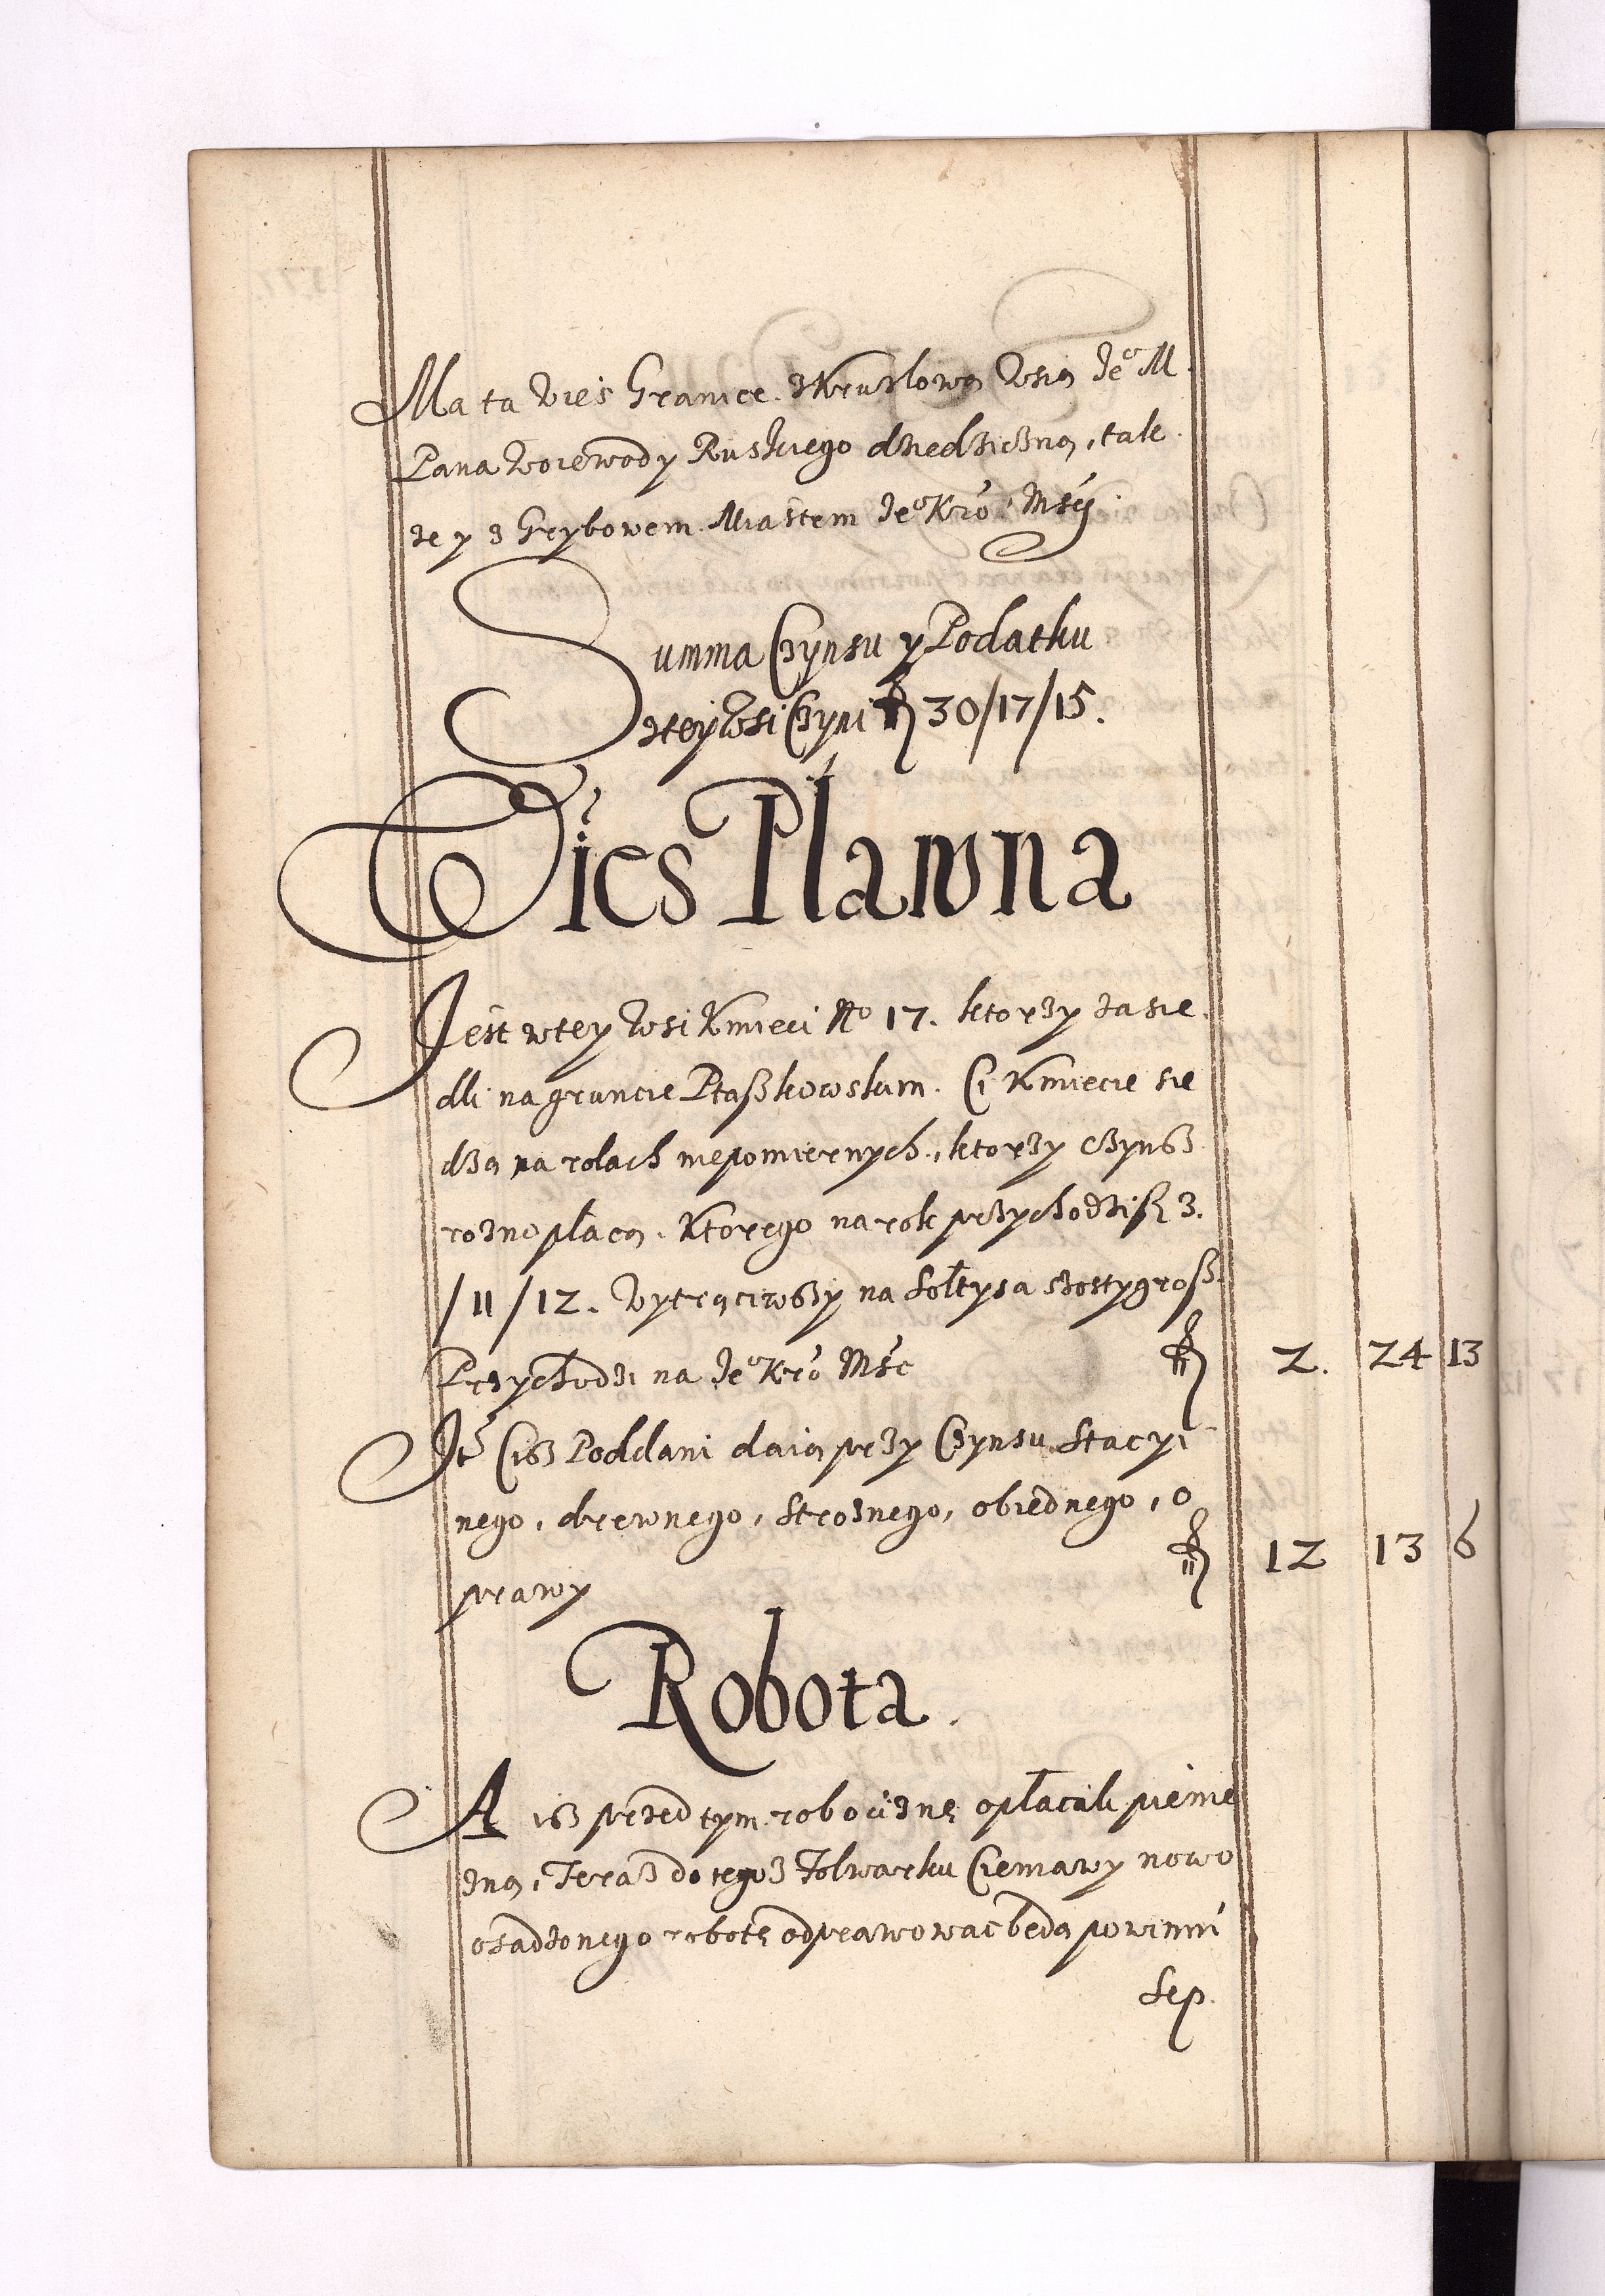 Ma ta Wieś Granice z Kruzlową Wsią Jeº M.
Pana Woiewody Ruskiego dziedziczną, tak
ze y z Grybowem Miastem Jeº Kró Mści
Summa Czynsu y Podatku
z tey Wsi Czyni fl 30/17/15.
Wies Pławna
Jest w tey Wsi Kmieci Nº 17. ktorzy zasie
dli na gruncie Ptaszkowskim. Ci Kmiecie sie
dzą na rolach niepomiernych, ktorzy czynsz
rozno płacą. Ktorego na rok przychodzi fl 3.
/11/12. Wytrąciwszy na Sołtysa szosty grosz
Przychodzi na Jeº Kró Mśc fl 2. 24 13
Itē Cisz Poddani daią przy Czynsu Stacyi
nego, drewnego, Stroznego, obiednego, o
prawy fl 12 13 6
Robota.
A isz przed tym robociznę opłacali pienię
dzą, Teraz do tegosz Folwarku Cieniawy nowo
osadzonego robotę odprawować będą powinni
Sep.